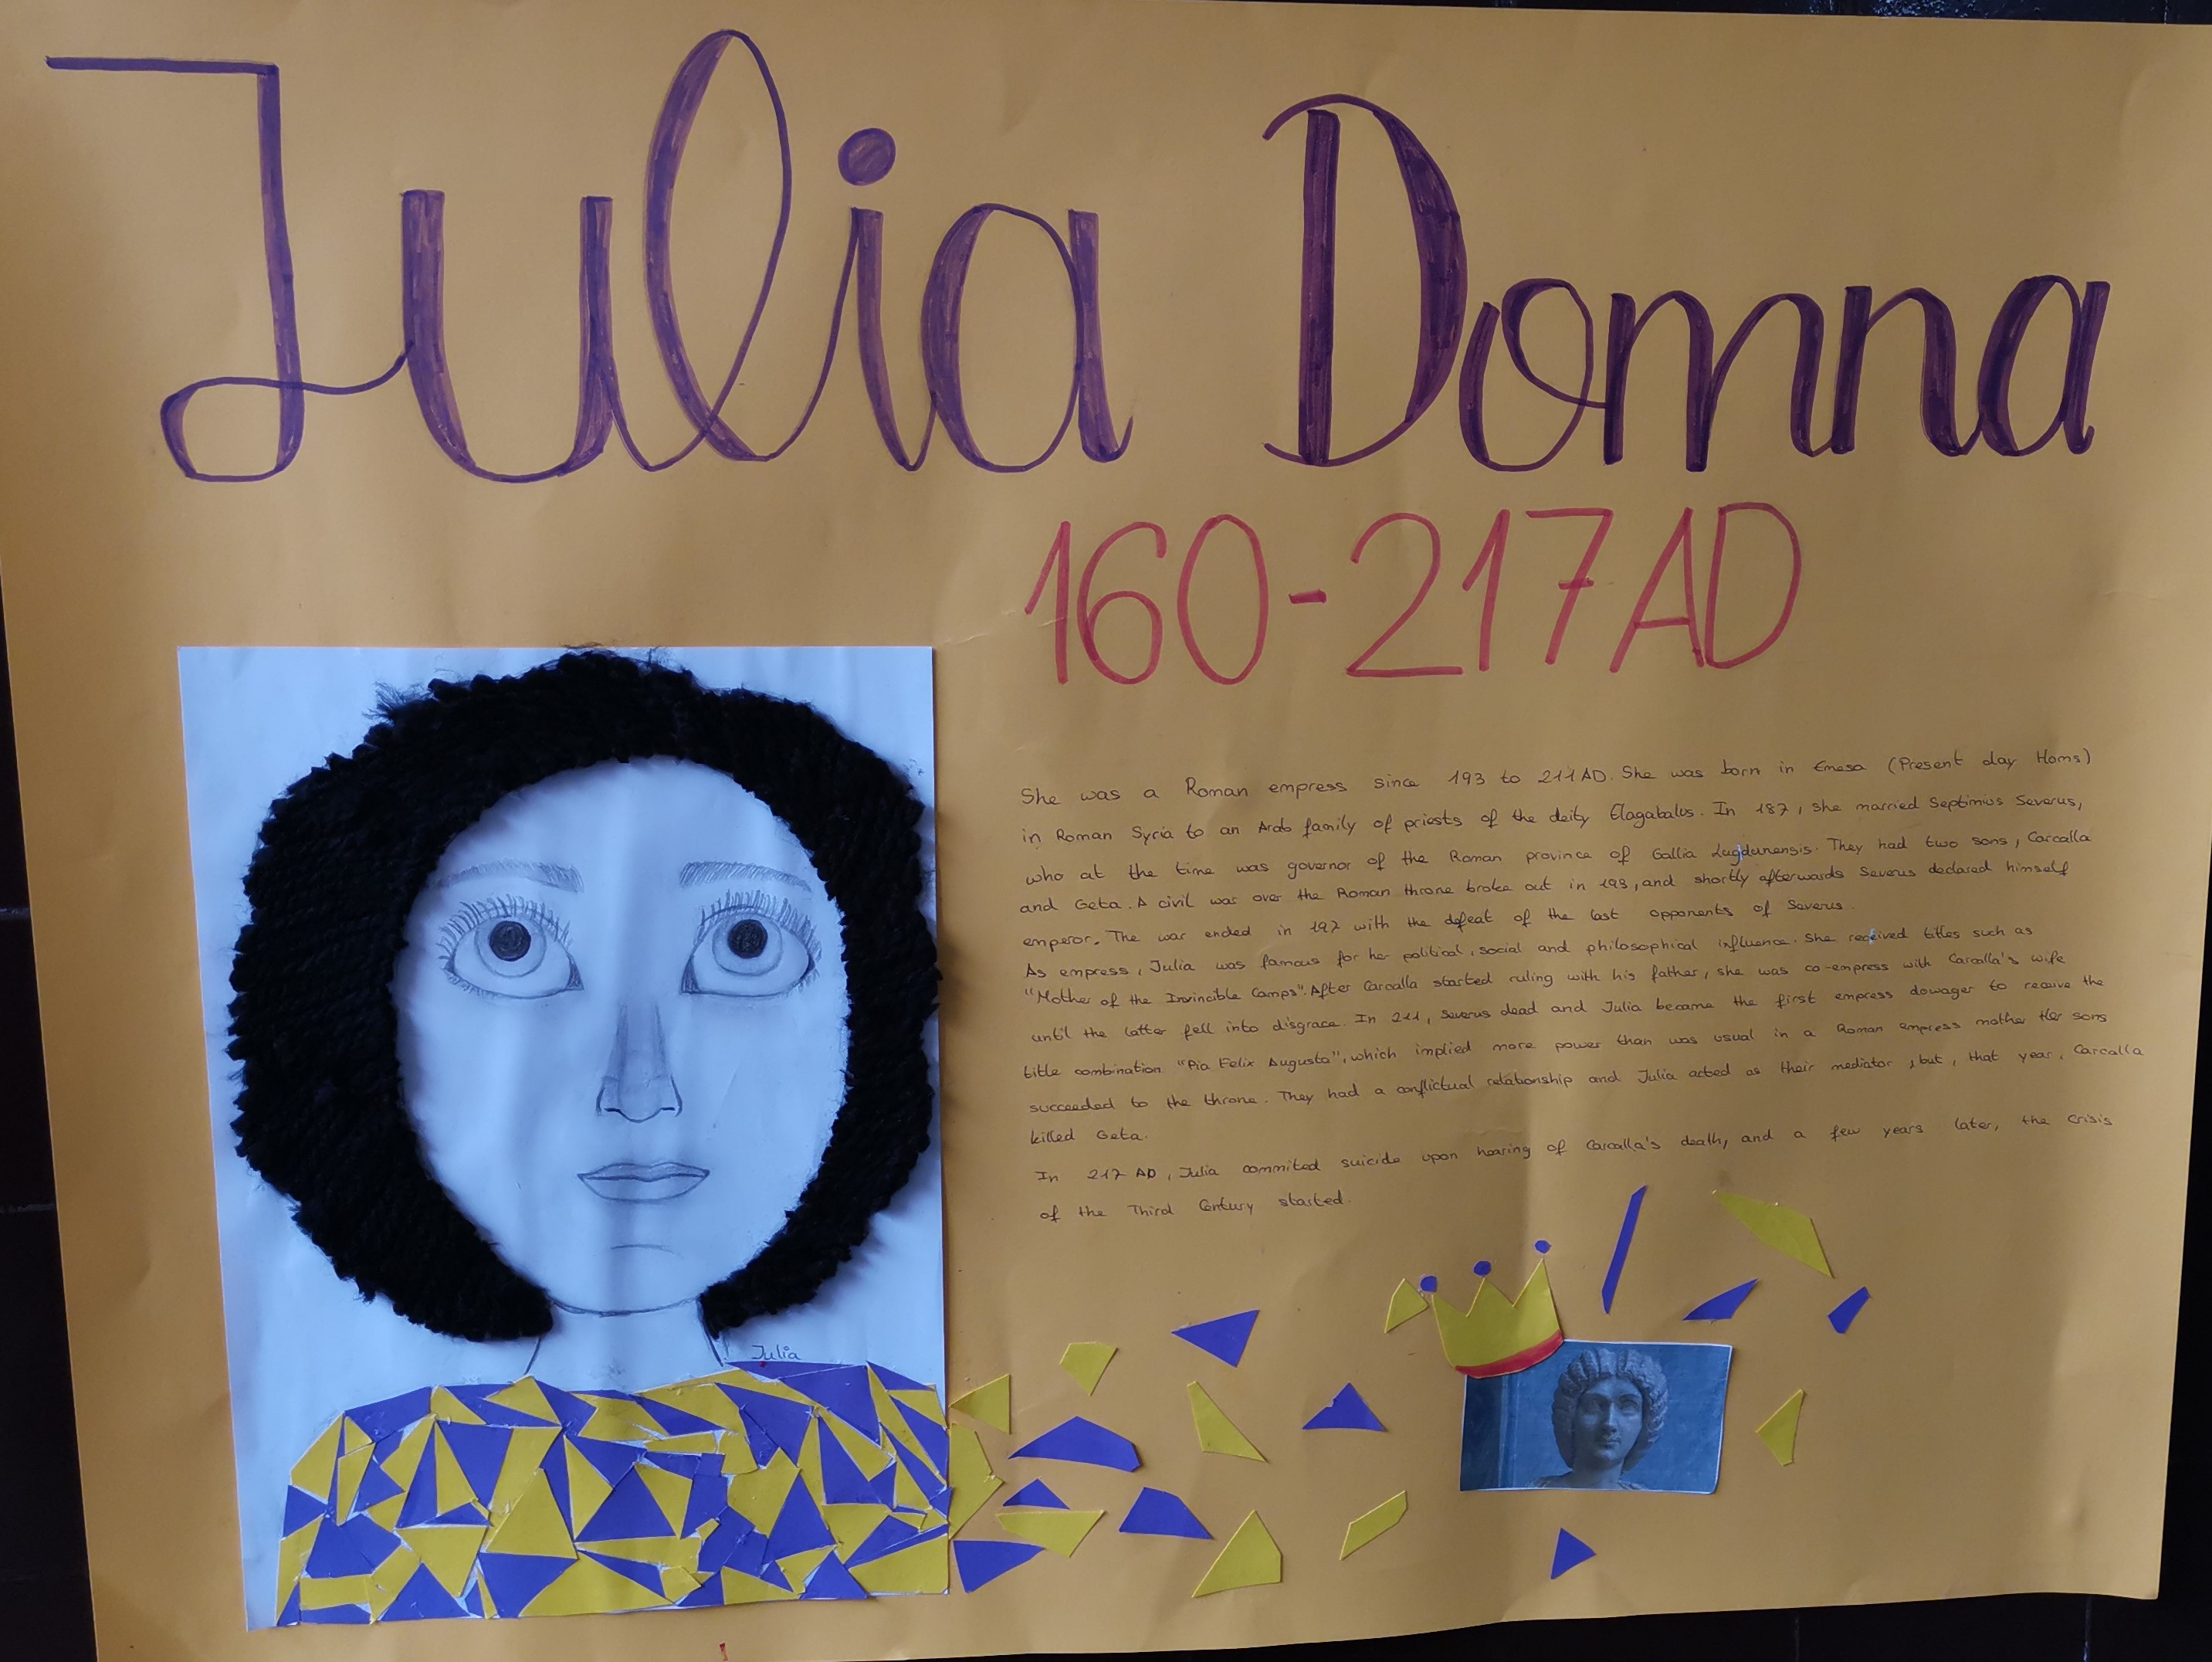 Julia Domna
160-217AD
She was a Roman empress since 193 to 211AD. She was born in Emesa (Present day Homs)
in Roman Syria to an Arab family of priests of the deity Elagabalus. In 187, she married Septimius Severus,
who at the time was governor of the Roman province of Gallia Lugdunensis. They had two sons, Carcalla
and Geta. A civil war over the Roman throne broke out in 193, and shortly afterwards Severus declared himself
emperor. The war ended in 197 with the defeat of the last opponents of Severus.
As empress, Julia was famous for her political, social and philosophical influence. She received titles such as
"Mother of the Invincible Camps". After Carcalla started ruling with his father, she was co-empress with Carcalla's wife
until the latter fell into disgrace. In 211, Severus dead and Julia became the first empress dowager to receive the
title combination "Pia Felix Augusta", which implied more power than was usual in a Roman empress mother Her sons
succeeded to the throne. They had a conflictual relationship and Julia acted as their mediator, but, that year, Carcalla
killed Geta.
In 217 AD, Julia commited suicide upon hearing of Carcalla's death, and a few years later, the Crisis
of the Third Century started.
Julia